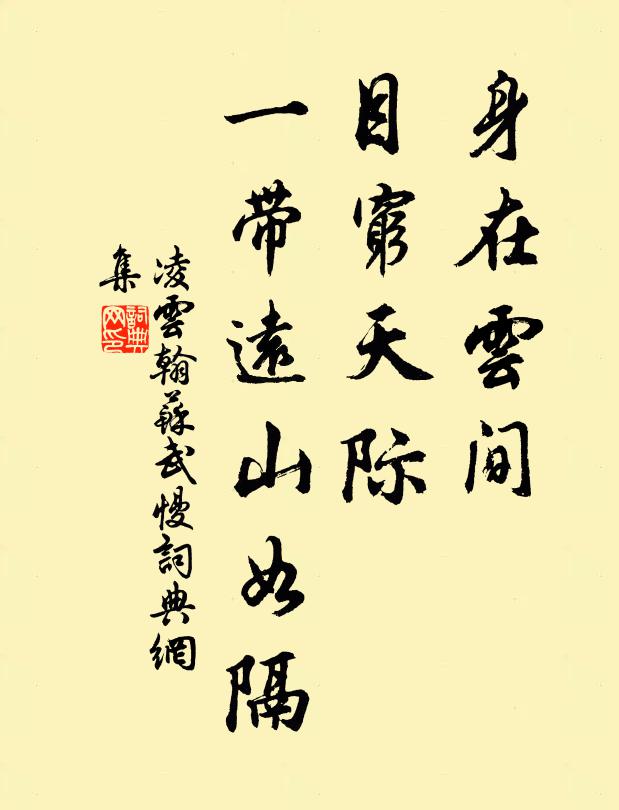 身在雲间
目窮天际
一帶遠山如隔
凌雲翰蘇武慢詞典網
集
詞典网印